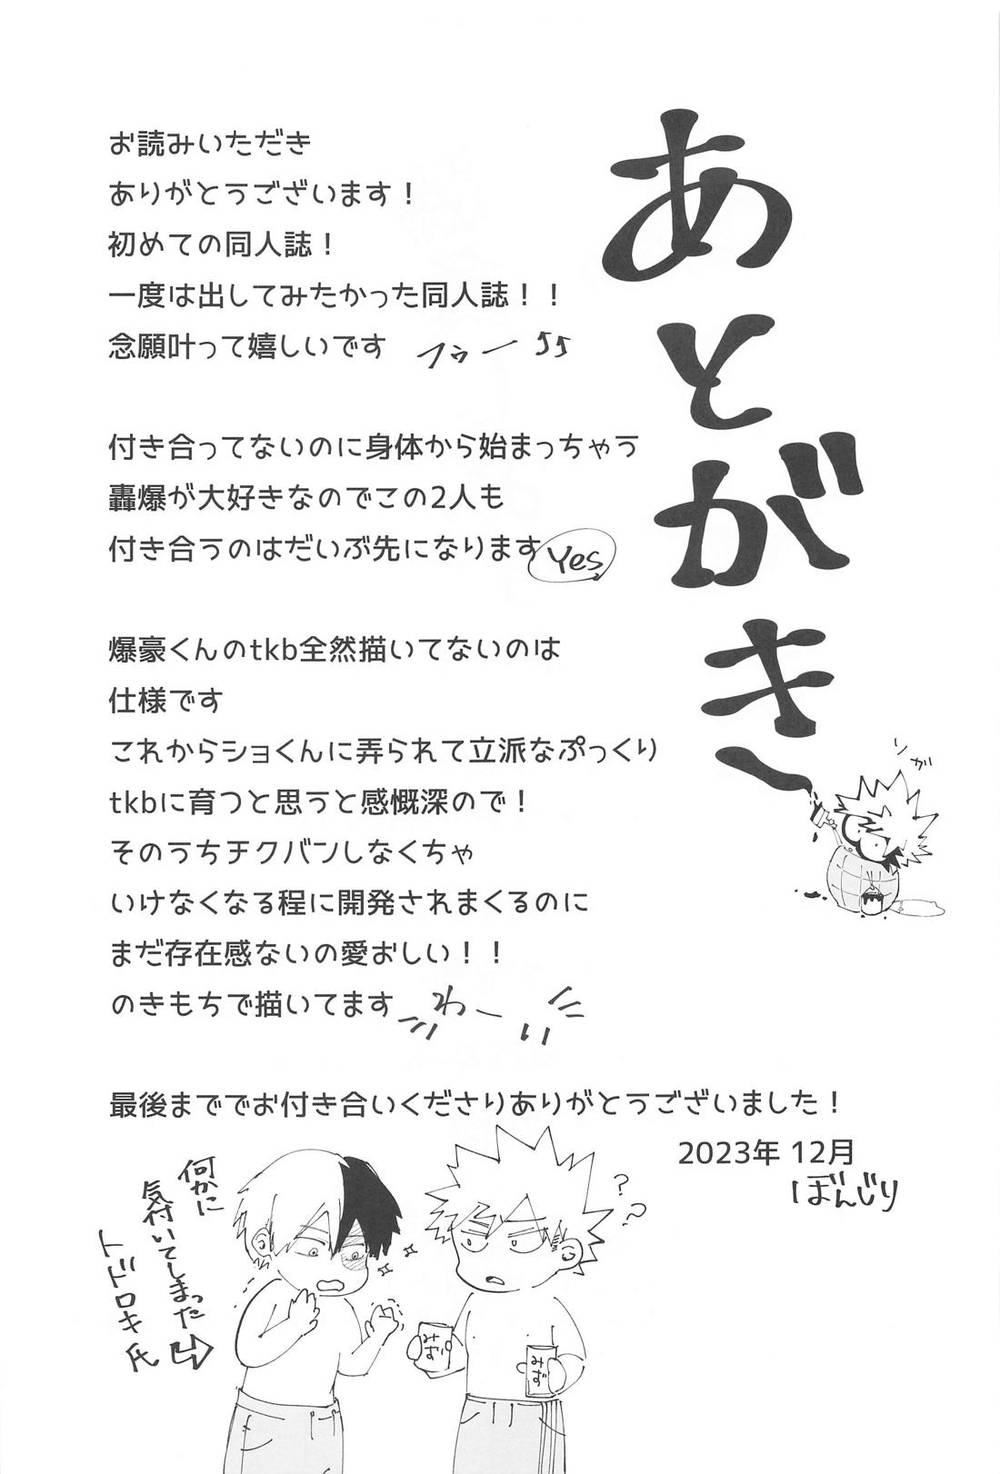 あとがき
お読みいただき
ありがとうございます！
初めての同人誌！
一度は出してみたかった同人誌！！
念願叶って嬉しいです
付き合ってないのに身体から始まっちゃう
轟爆が大好きなのでこの2人も
付き合うのはだいぶ先になります
Yes
爆豪くんのtkb全然描いてないのは
仕様です
これからショくんに弄られて立派なぷっくり
tkbに育つと思うと感慨深ので！
そのうちチクバンしなくちゃ
いけなくなる程に開発されまくるのに
まだ存在感ないの愛おしい！！
のきもちで描いてます
わーい
最後まででお付き合いくださりありがとうございました！
2023年 12月
ぼんじり
何かに
気付いてしまった
トドロキ氏
??
みず
みず